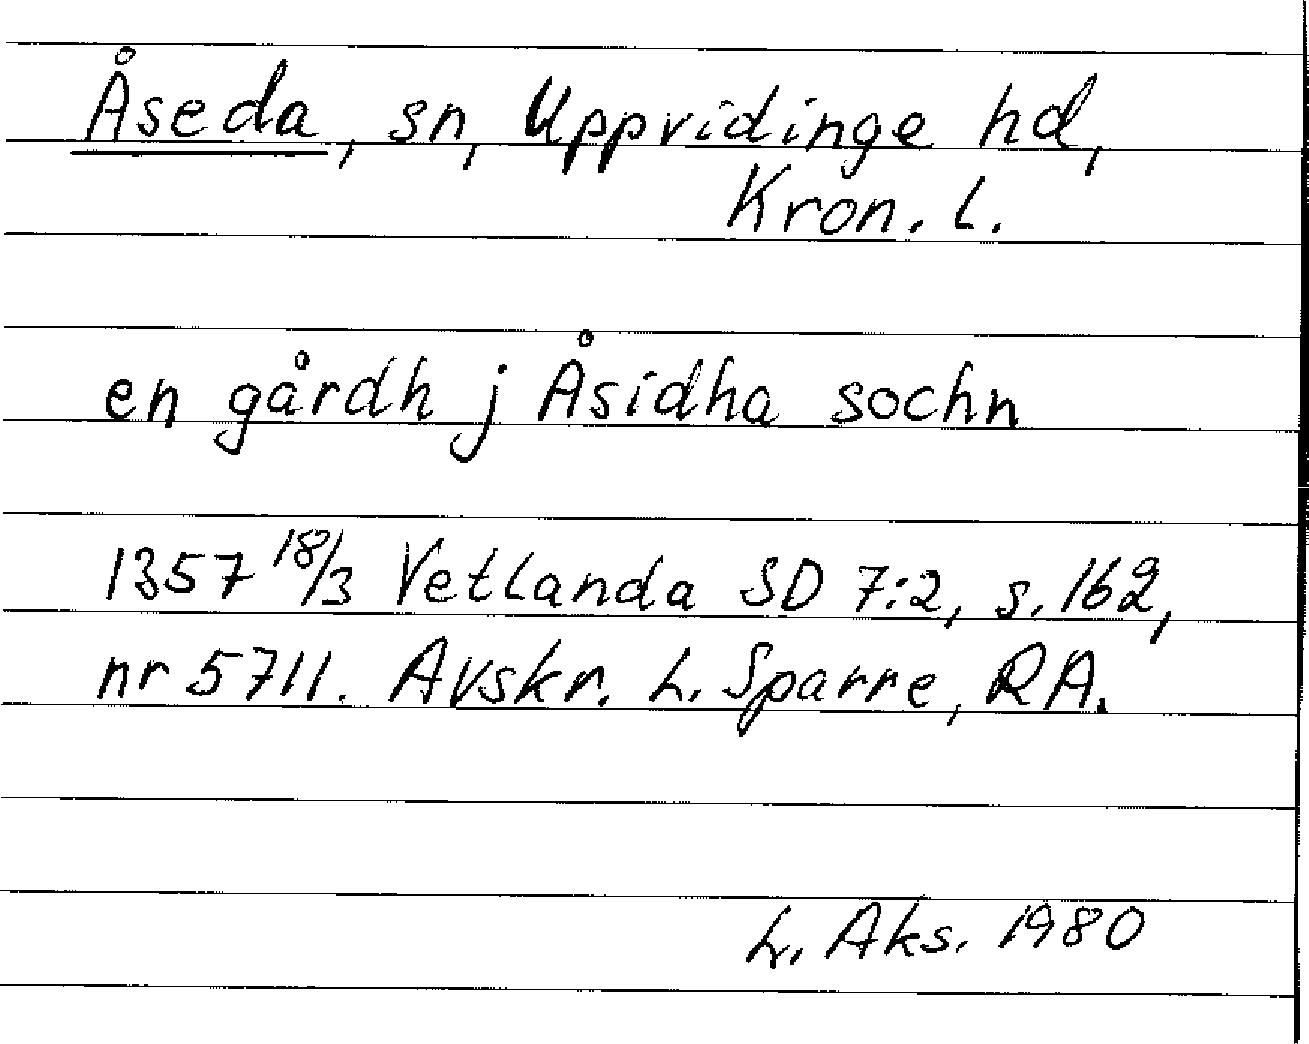 Åseda, sn, Uppvidinge hd,
Kron. L.
en gårdh j Åsidha sochn
1357 18/3 Vetlanda SD 7:2, s. 162,
nr 5711. Avskr. L. Sparre, RA.
L. Aks. 1980